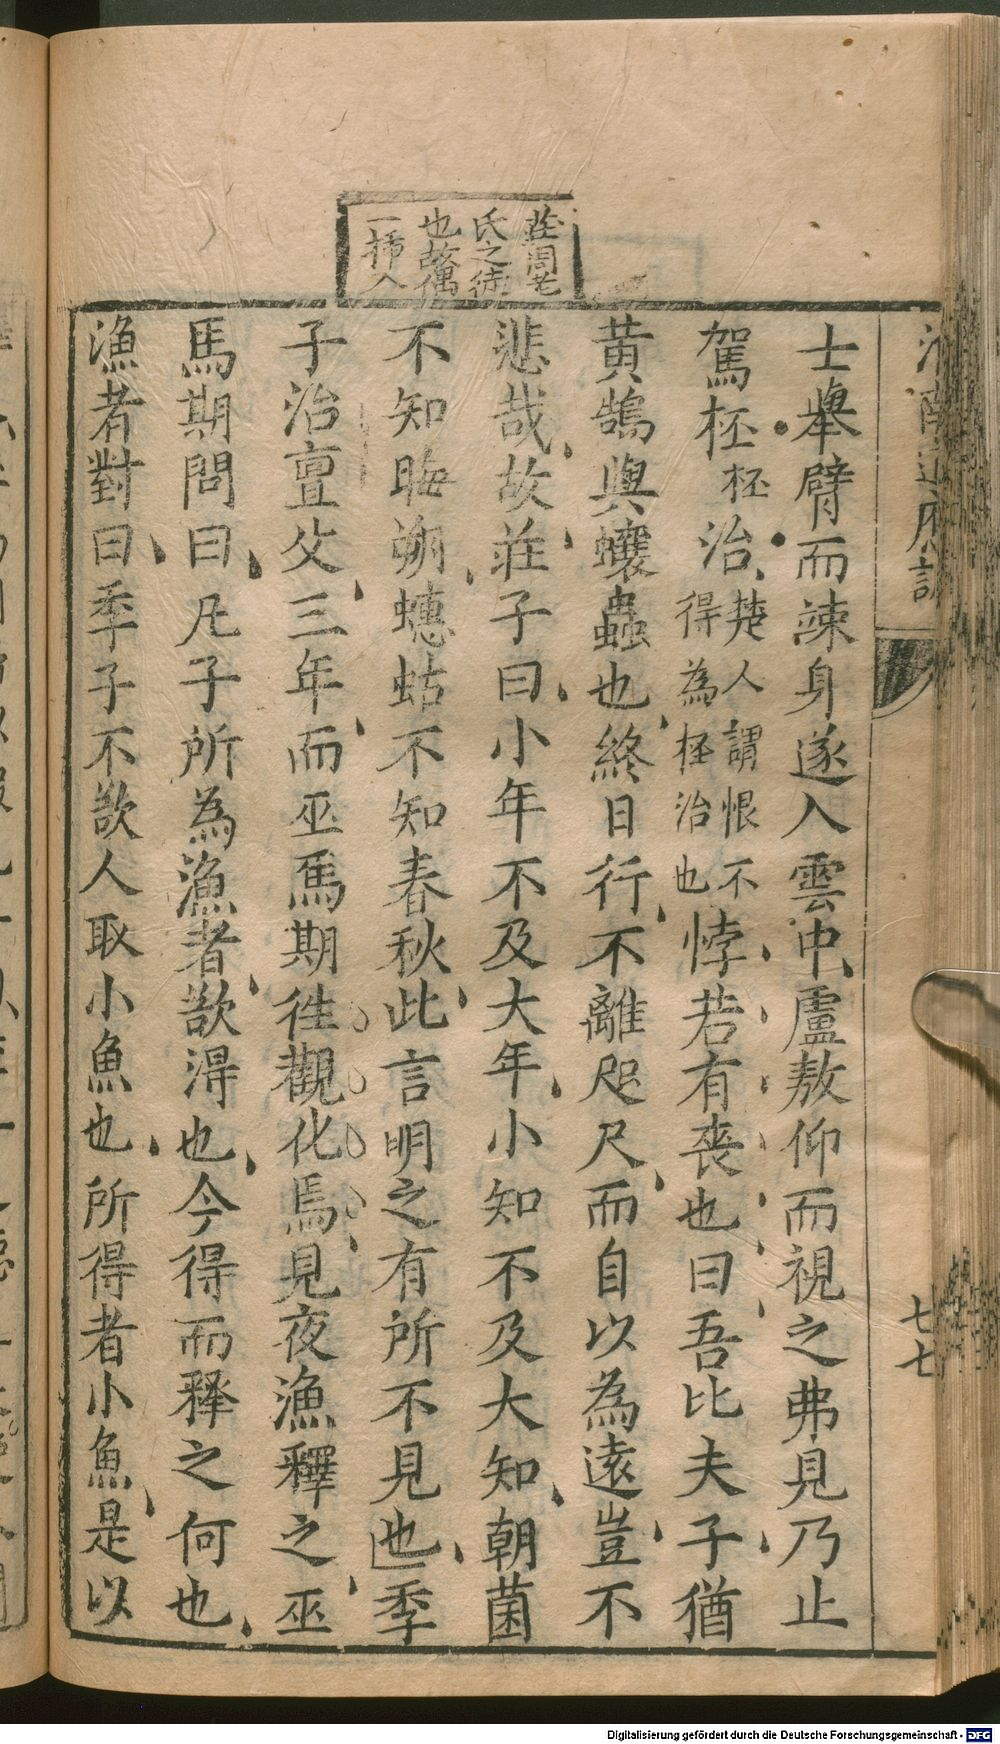 莊周老
氏之徒
也故偶
一插入
七七
士舉臂而竦身遂入雲中盧敖仰而視之弗見乃止
駕柸柸治楚人謂恨不得為柸治也悖若有喪也曰吾比夫子猶
黃鵠與蠰蟲也終日行不離咫尺而自以為遠豈不
悲哉故莊子曰小年不及大年小知不及大知朝菌
不知晦朔蟪蛄不知春秋此言明之有所不見也季
子治亶父三年而巫馬期往觀化焉見夜漁釋之巫
馬期問曰凡子所為漁者欲得也今得而釋之何也
漁者對曰季子不欲人取小魚也所得者小魚是以
Digitalisierung gefördert durch die Deutsche Forschungsgemeinschaft - DFG